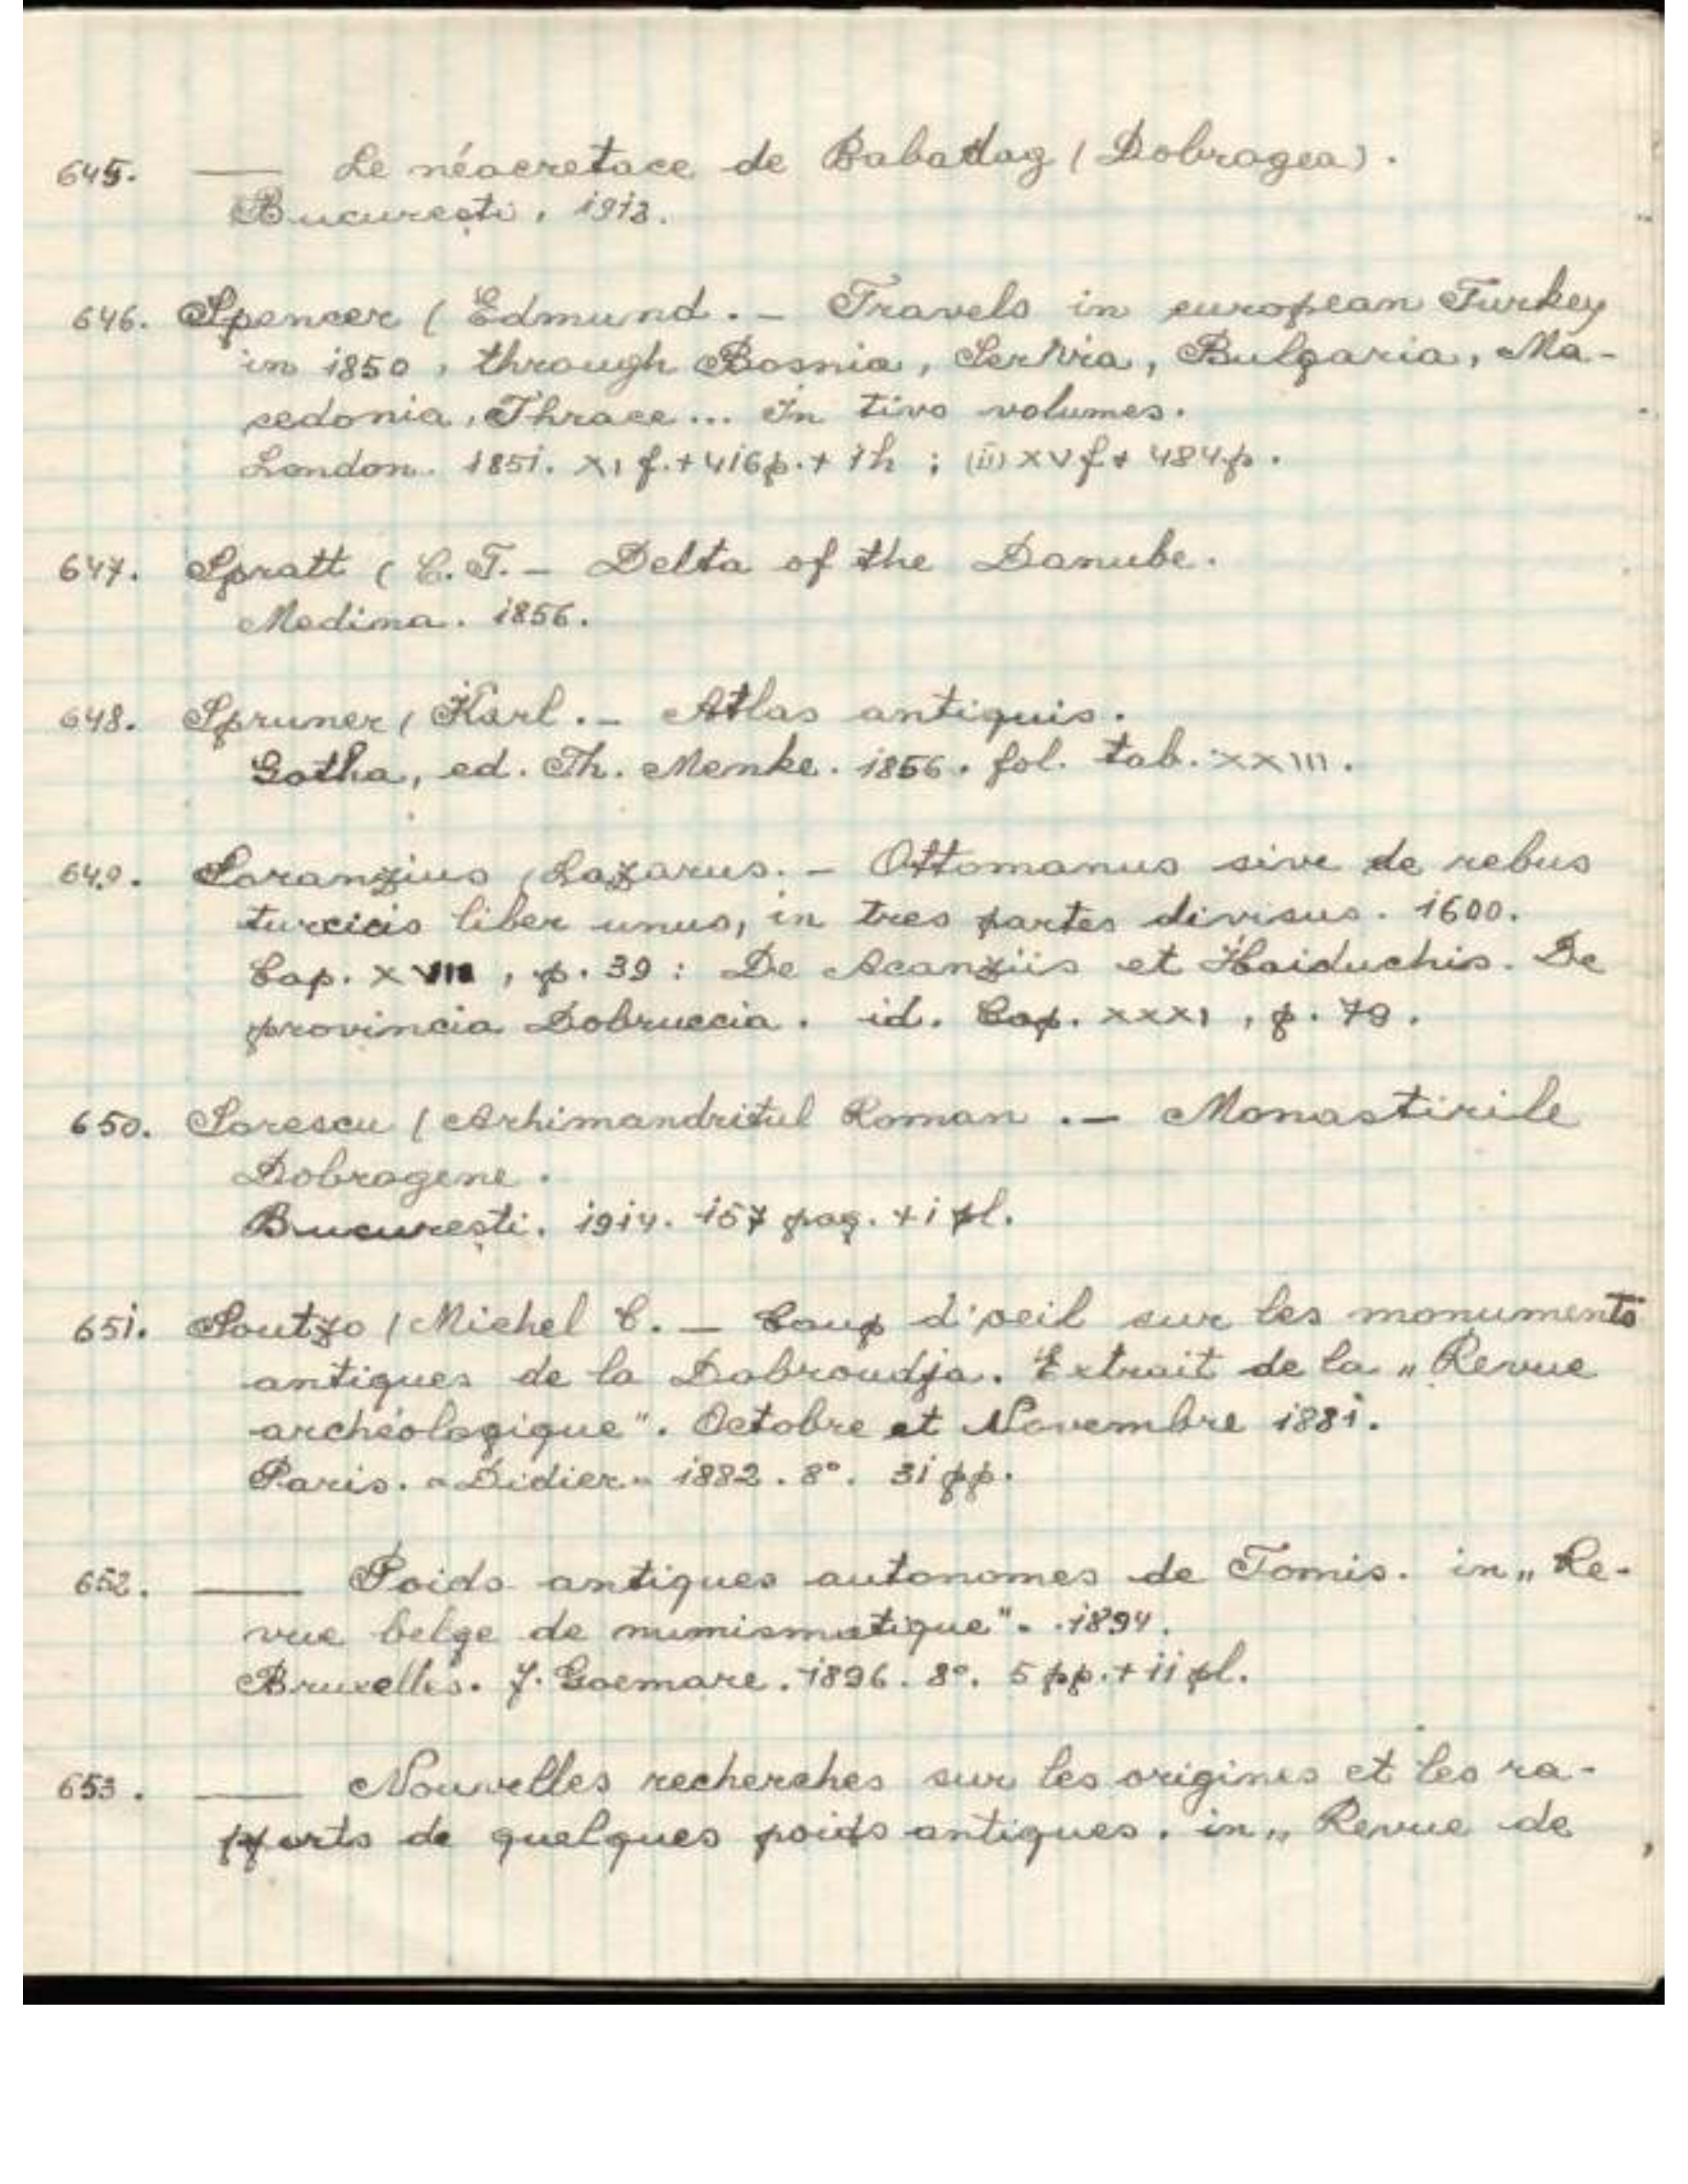 645. — Le néocretace de Babadag (Dobrogea).
București, 1913.
646. Spencer ( Edmund. – Travels in european Turkey
in 1850, through Bosnia, Servia, Bulgaria, Ma-
cedonia, Thrace... In two volumes.
London. 1851. XI f. + 416 p. + 1h ; (ii) XV f + 484 p.
647. Spratt ( C. T. – Delta of the Danube.
Medina. 1856.
648. Spruner ( Karl. – Atlas antiquis.
Gotha, ed. Th. Menke. 1856. fol. tab. XXIII.
649. Soranzius ( Lazarus. – Ottomanus sive de rebus
turcicis liber unus, in tres partes divisus. 1600.
Cap. XVIII, p. 39 : De Acanziis et Haiduchis. De
provincia Dobruccia. id. Cap. XXXI, p. 79.
650. Sorescu ( Arhimandritul Roman. – Monastirile
Dobrogene.
București. 1914. 157 pag. + 1 pl.
651. Soutzo ( Michel C. – Coup d'oeil sur les monuments
antiques de la Dobroudja. Extrait de la „Revue
archéologique". Octobre et Novembre 1881.
Paris. „Didier„ 1882. 8°. 31 pp.
652. — Poids antiques autonomes de Tomis. in „Re-
vue belge de numismatique". 1894.
Bruxelles. J. Goemare. 1896. 8°. 5 pp. + ii pl.
653. — Nouvelles recherches sur les origines et les ra-
pports de quelques poids antiques. in „Revue de